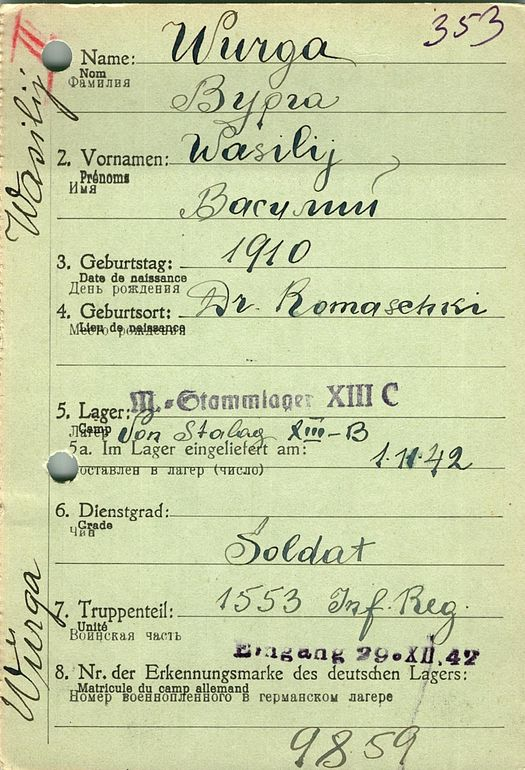 II
353
Name: Wurga
Nom
Фамилия
Вурга
2. Vornamen: Wasilij
Prénoms
Имя
Василий
3. Geburtstag: 1910
Date de naissance
День рождения
4. Geburtsort: Dr. Romaschki
Lieu de naissance
Место рождения
M.-Stammlager XIII C
5. Lager:
Camp
Лагерь Von Stalag XIII-B
5a. Im Lager eingeliefert am: 1.11.42
оставлен в лагер (число)
6. Dienstgrad:
Grade
Чин
Soldat
7. Truppenteil: 1553 Inf. Reg.
Unité
Воинская часть
Eingang 29.XII.42
8. Nr. der Erkennungsmarke des deutschen Lagers:
Matricule du camp allemand
Номер военнопленного в германском лагере
9859
Wurga Wasilij